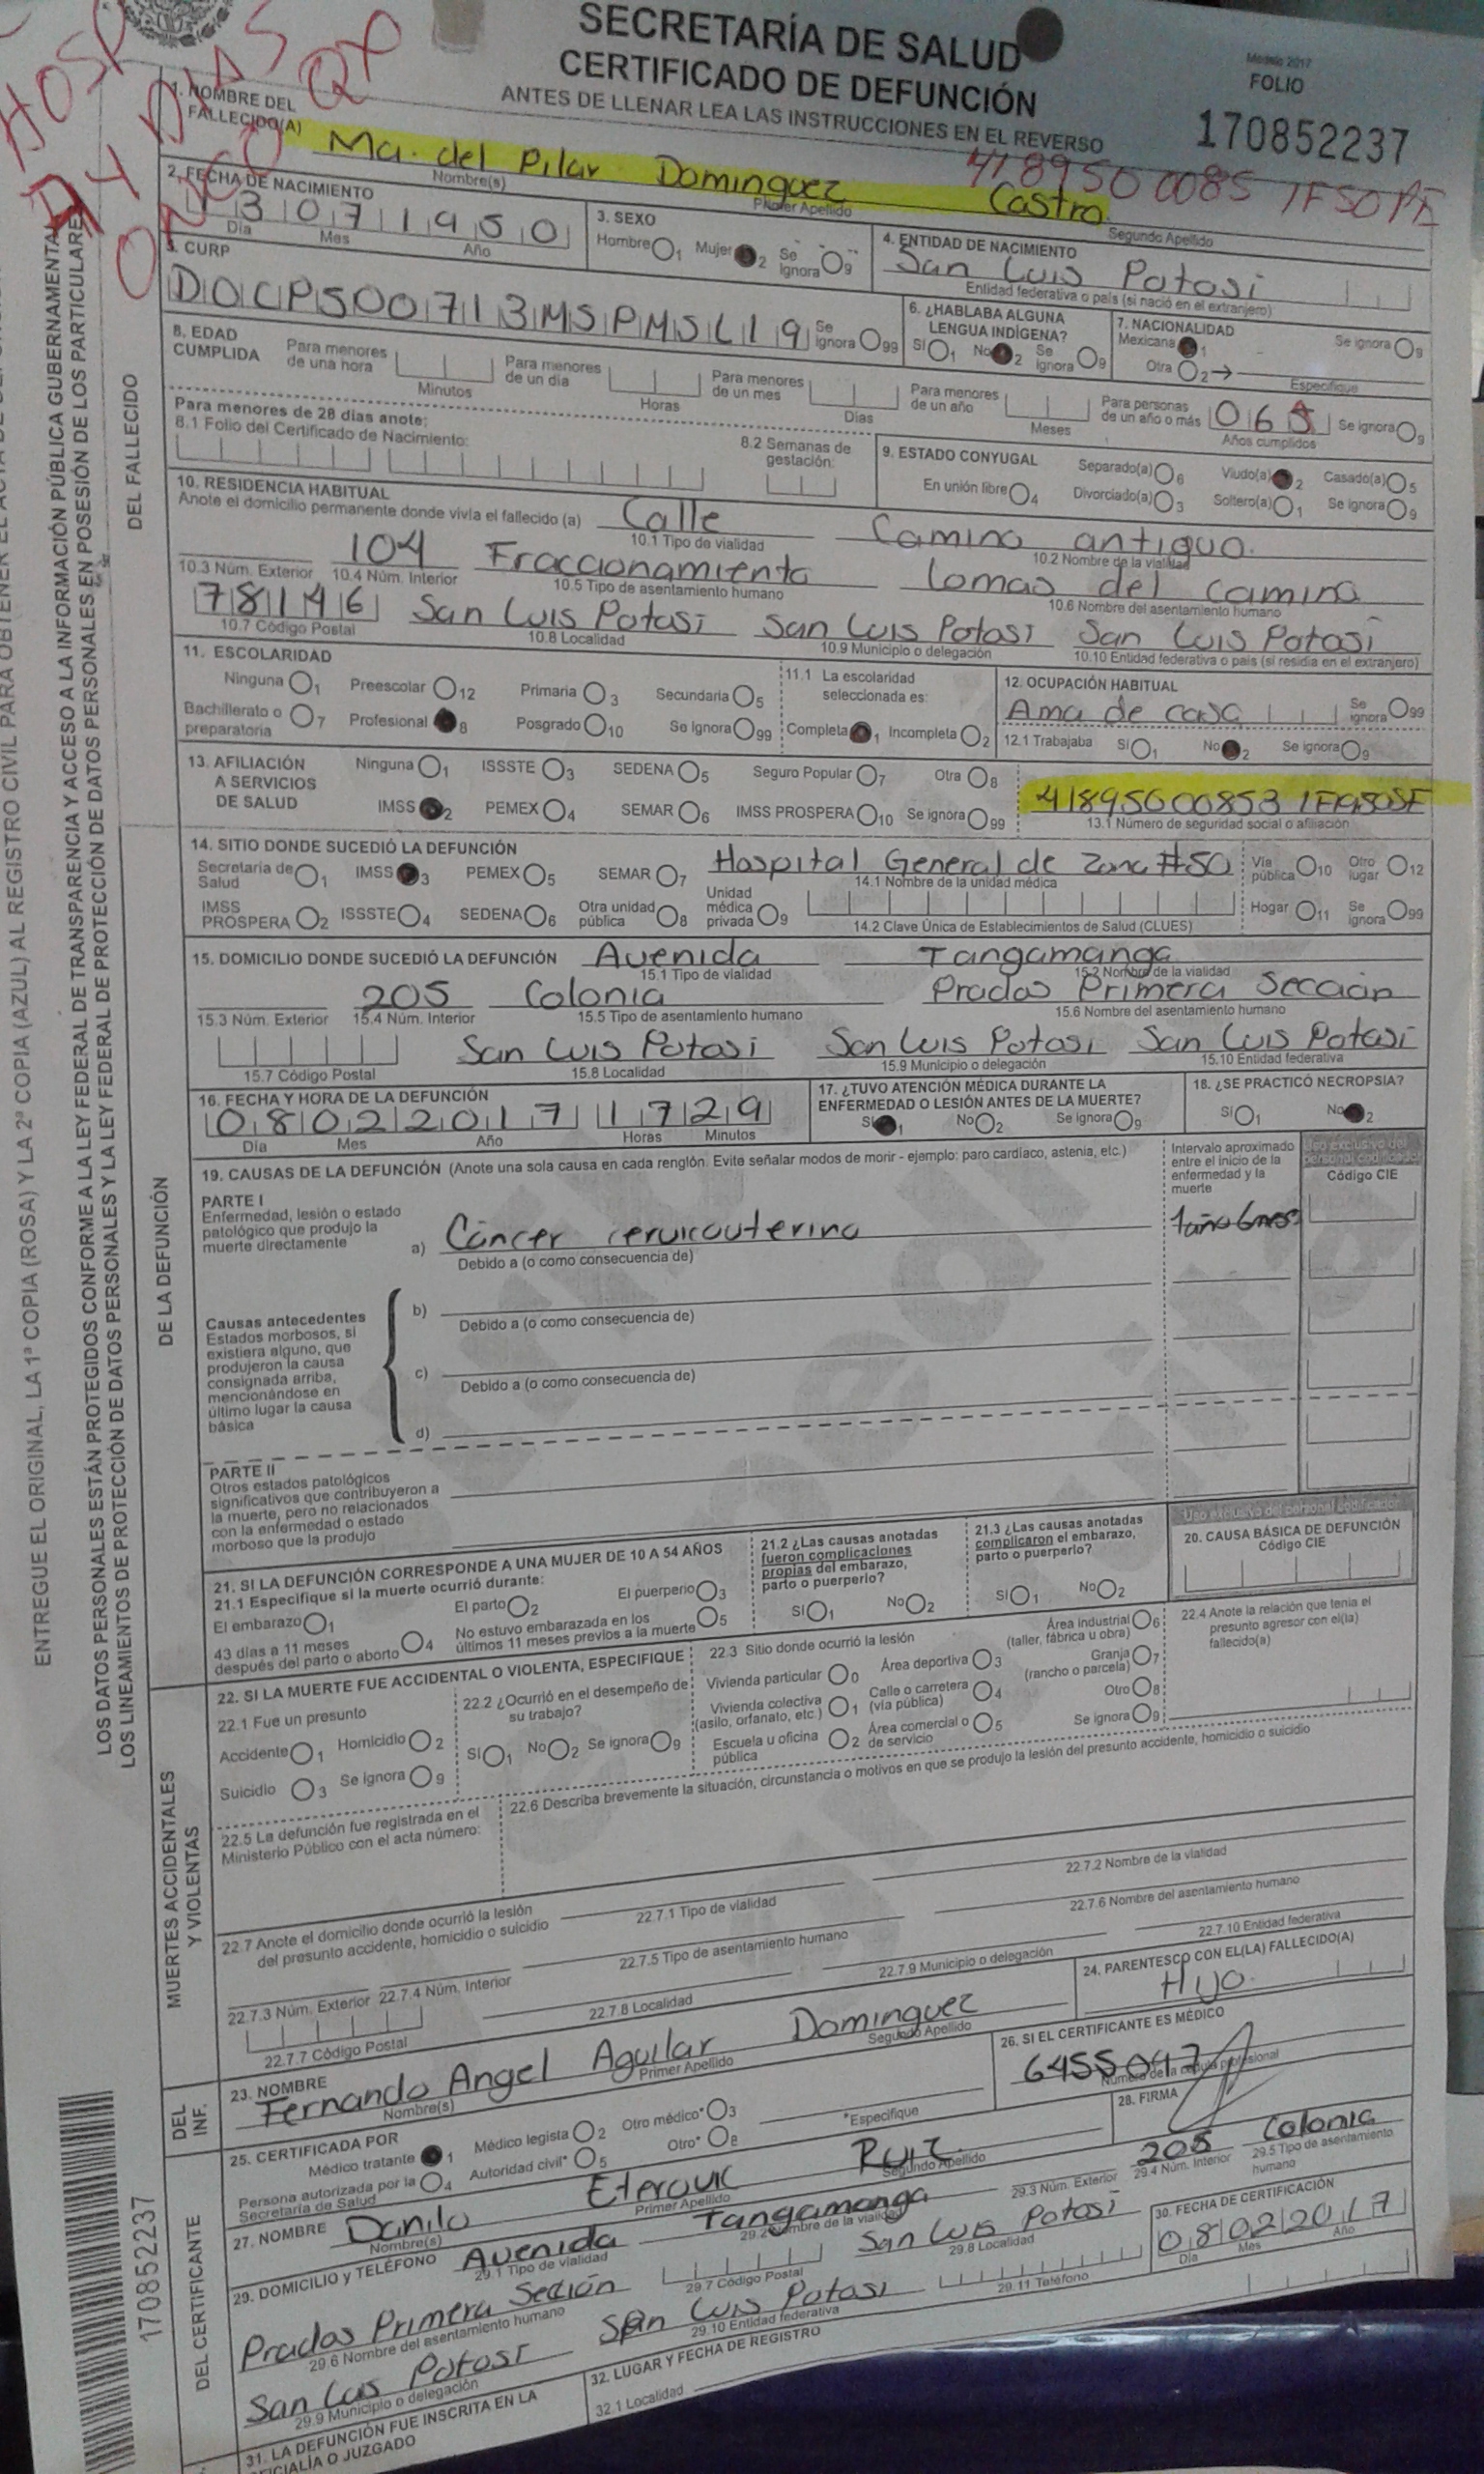 SECRETARÍA DE SALUD
CERTIFICADO DE DEFUNCIÓN
ANTES DE LLENAR LEA LAS INSTRUCCIONES EN EL REVERSO
Modelo 2017
FOLIO
170852237
HOSP
DIAS
1. NOMBRE DEL FALLECIDO(A)
Ma. del Pilar Dominguez Castro
Nombre(s) Primer Apellido Segundo Apellido
2. FECHA DE NACIMIENTO
13071950
Día Mes Año
3. SEXO
Hombre 1 Mujer 2 Se ignora 9
4. ENTIDAD DE NACIMIENTO
San Luis Potosi
Entidad federativa o país (si nació en el extranjero)
5. CURP
DOCP500713MSPMSL19 Se ignora 99
6. ¿HABLABA ALGUNA LENGUA INDÍGENA?
Sí 1 No 2 Se ignora 9
7. NACIONALIDAD
Mexicana 1 Se ignora 9
Otra 2 Especifique
8. EDAD CUMPLIDA
Para menores de una hora Minutos
Para menores de un día Horas
Para menores de un mes Días
Para menores de un año Meses
Para personas de un año o más Años cumplidos Se ignora 9
Para menores de 28 días anote:
8.1 Folio del Certificado de Nacimiento:
8.2 Semanas de gestación:
9. ESTADO CONYUGAL
Separado(a) 6 Viudo(a) 2 Casado(a) 5
En unión libre 4 Divorciado(a) 3 Soltero(a) 1 Se ignora 9
10. RESIDENCIA HABITUAL
Anote el domicilio permanente donde vivía el fallecido (a) Calle Camino antiguo
10.1 Tipo de vialidad 10.2 Nombre de la vialidad
104 Fraccionamiento Lomas del Camino
10.3 Núm. Exterior 10.4 Núm. Interior 10.5 Tipo de asentamiento humano 10.6 Nombre del asentamiento humano
78146 San Luis Potosi San Luis Potosi San Luis Potosi
10.7 Código Postal 10.8 Localidad 10.9 Municipio o delegación 10.10 Entidad federativa o país (si residía en el extranjero)
11. ESCOLARIDAD
Ninguna 1 Preescolar 12 Primaria 3 Secundaria 5
Bachillerato o preparatoria 7 Profesional 8 Posgrado 10 Se ignora 99
11.1 La escolaridad seleccionada es:
Completa 1 Incompleta 2
12. OCUPACIÓN HABITUAL
Ama de casa Se ignora 99
12.1 Trabajaba Sí 1 No 2 Se ignora 9
13. AFILIACIÓN A SERVICIOS DE SALUD
Ninguna 1 ISSSTE 3 SEDENA 5 Seguro Popular 7 Otra 8
IMSS 2 PEMEX 4 SEMAR 6 IMSS PROSPERA 10 Se ignora 99
13.1 Número de seguridad social o afiliación
14. SITIO DONDE SUCEDIÓ LA DEFUNCIÓN
Secretaría de Salud 1 IMSS 3 PEMEX 5 SEMAR 7
IMSS PROSPERA 2 ISSSTE 4 SEDENA 6 Otra unidad pública 8 Unidad médica privada 9
Hospital General de Zona #50
14.1 Nombre de la unidad médica
14.2 Clave Única de Establecimientos de Salud (CLUES)
Vía pública 10 Otro lugar 12
Hogar 11 Se ignora 99
15. DOMICILIO DONDE SUCEDIÓ LA DEFUNCIÓN Avenida Tangamanga
15.1 Tipo de vialidad 15.2 Nombre de la vialidad
205 Colonia Prados Primera Sección
15.3 Núm. Exterior 15.4 Núm. Interior 15.5 Tipo de asentamiento humano 15.6 Nombre del asentamiento humano
San Luis Potosi San Luis Potosi San Luis Potosi
15.7 Código Postal 15.8 Localidad 15.9 Municipio o delegación 15.10 Entidad federativa
16. FECHA Y HORA DE LA DEFUNCIÓN
08022017 1729
Día Mes Año Horas Minutos
17. ¿TUVO ATENCIÓN MÉDICA DURANTE LA ENFERMEDAD O LESIÓN ANTES DE LA MUERTE?
Sí 1 No 2 Se ignora 9
18. ¿SE PRACTICÓ NECROPSIA?
Sí 1 No 2
19. CAUSAS DE LA DEFUNCIÓN (Anote una sola causa en cada renglón. Evite señalar modos de morir - ejemplo: paro cardíaco, astenia, etc.)
Intervalo aproximado entre el inicio de la enfermedad y la muerte
Uso exclusivo del personal codificador
Código CIE
PARTE I
Enfermedad, lesión o estado patológico que produjo la muerte directamente
a) Cáncer cervicouterino
Debido a (o como consecuencia de)
Causas antecedentes
Estados morbosos, si existiera alguno, que produjeron la causa consignada arriba, mencionándose en último lugar la causa básica
b)
Debido a (o como consecuencia de)
c)
Debido a (o como consecuencia de)
d)
PARTE II
Otros estados patológicos significativos que contribuyeron a la muerte, pero no relacionados con la enfermedad o estado morboso que la produjo
21. SI LA DEFUNCIÓN CORRESPONDE A UNA MUJER DE 10 A 54 AÑOS
21.1 Especifique si la muerte ocurrió durante:
El embarazo 1 El parto 2 El puerperio 3
43 días a 11 meses después del parto o aborto 4 No estuvo embarazada en los últimos 11 meses previos a la muerte 5
21.2 ¿Las causas anotadas fueron complicaciones propias del embarazo, parto o puerperio?
Sí 1 No 2
21.3 ¿Las causas anotadas complicaron el embarazo, parto o puerperio?
Sí 1 No 2
Uso exclusivo del personal codificador
20. CAUSA BÁSICA DE DEFUNCIÓN
Código CIE
22. SI LA MUERTE FUE ACCIDENTAL O VIOLENTA, ESPECIFIQUE
22.1 Fue un presunto
Accidente 1 Homicidio 2
Suicidio 3 Se ignora 9
22.2 ¿Ocurrió en el desempeño de su trabajo?
Sí 1 No 2 Se ignora 9
22.3 Sitio donde ocurrió la lesión
Vivienda particular 0 Área deportiva 3 Área industrial (taller, fábrica u obra) 6
Vivienda colectiva (asilo, orfanato, etc.) 1 Calle o carretera (vía pública) 4 Granja (rancho o parcela) 7
Escuela u oficina pública 2 Área comercial o de servicio 5 Otro 8
Se ignora 9
22.4 Anote la relación que tenía el presunto agresor con el(la) fallecido(a)
22.5 La defunción fue registrada en el Ministerio Público con el acta número:
22.6 Describa brevemente la situación, circunstancia o motivos en que se produjo la lesión del presunto accidente, homicidio o suicidio
22.7 Anote el domicilio donde ocurrió la lesión del presunto accidente, homicidio o suicidio
22.7.1 Tipo de vialidad 22.7.2 Nombre de la vialidad
22.7.3 Núm. Exterior 22.7.4 Núm. Interior 22.7.5 Tipo de asentamiento humano 22.7.6 Nombre del asentamiento humano
22.7.7 Código Postal 22.7.8 Localidad 22.7.9 Municipio o delegación 22.7.10 Entidad federativa
23. NOMBRE
Fernando Angel Aguilar Dominguez
Nombre(s) Primer Apellido Segundo Apellido
24. PARENTESCO CON EL(LA) FALLECIDO(A)
Hijo
25. CERTIFICADA POR
Médico tratante 1 Médico legista 2 Otro médico* 3
Persona autorizada por la Secretaría de Salud 4 Autoridad civil* 5 Otro* 8
*Especifique
26. SI EL CERTIFICANTE ES MÉDICO
6455047
Número de la cédula profesional
27. NOMBRE Danilo Eterovic Ruiz
Nombre(s) Primer Apellido Segundo Apellido
28. FIRMA
29. DOMICILIO y TELÉFONO Avenida Tangamanga 205 Colonia
29.1 Tipo de vialidad 29.2 Nombre de la vialidad 29.3 Núm. Exterior 29.4 Núm. Interior 29.5 Tipo de asentamiento humano
Prados Primera Sección San Luis Potosi
29.6 Nombre del asentamiento humano 29.7 Código Postal 29.8 Localidad
San Luis Potosi San Luis Potosi
29.9 Municipio o delegación 29.10 Entidad federativa 29.11 Teléfono
30. FECHA DE CERTIFICACIÓN
08022017
Día Mes Año
31. LA DEFUNCIÓN FUE INSCRITA EN LA
OFICIALÍA O JUZGADO
32. LUGAR Y FECHA DE REGISTRO
32.1 Localidad
DEL FALLECIDO
DE LA DEFUNCIÓN
MUERTES ACCIDENTALES Y VIOLENTAS
DEL INF.
DEL CERTIFICANTE
170852237
LOS DATOS PERSONALES ESTÁN PROTEGIDOS CONFORME A LA LEY FEDERAL DE TRANSPARENCIA Y ACCESO A LA INFORMACIÓN PÚBLICA GUBERNAMENTAL
LOS LINEAMIENTOS DE PROTECCIÓN DE DATOS PERSONALES Y LA LEY FEDERAL DE PROTECCIÓN DE DATOS PERSONALES EN POSESIÓN DE LOS PARTICULARES
ENTREGUE EL ORIGINAL, LA 1ª COPIA (ROSA) Y LA 2ª COPIA (AZUL) AL REGISTRO CIVIL PARA OBTENER EL ACTA DE